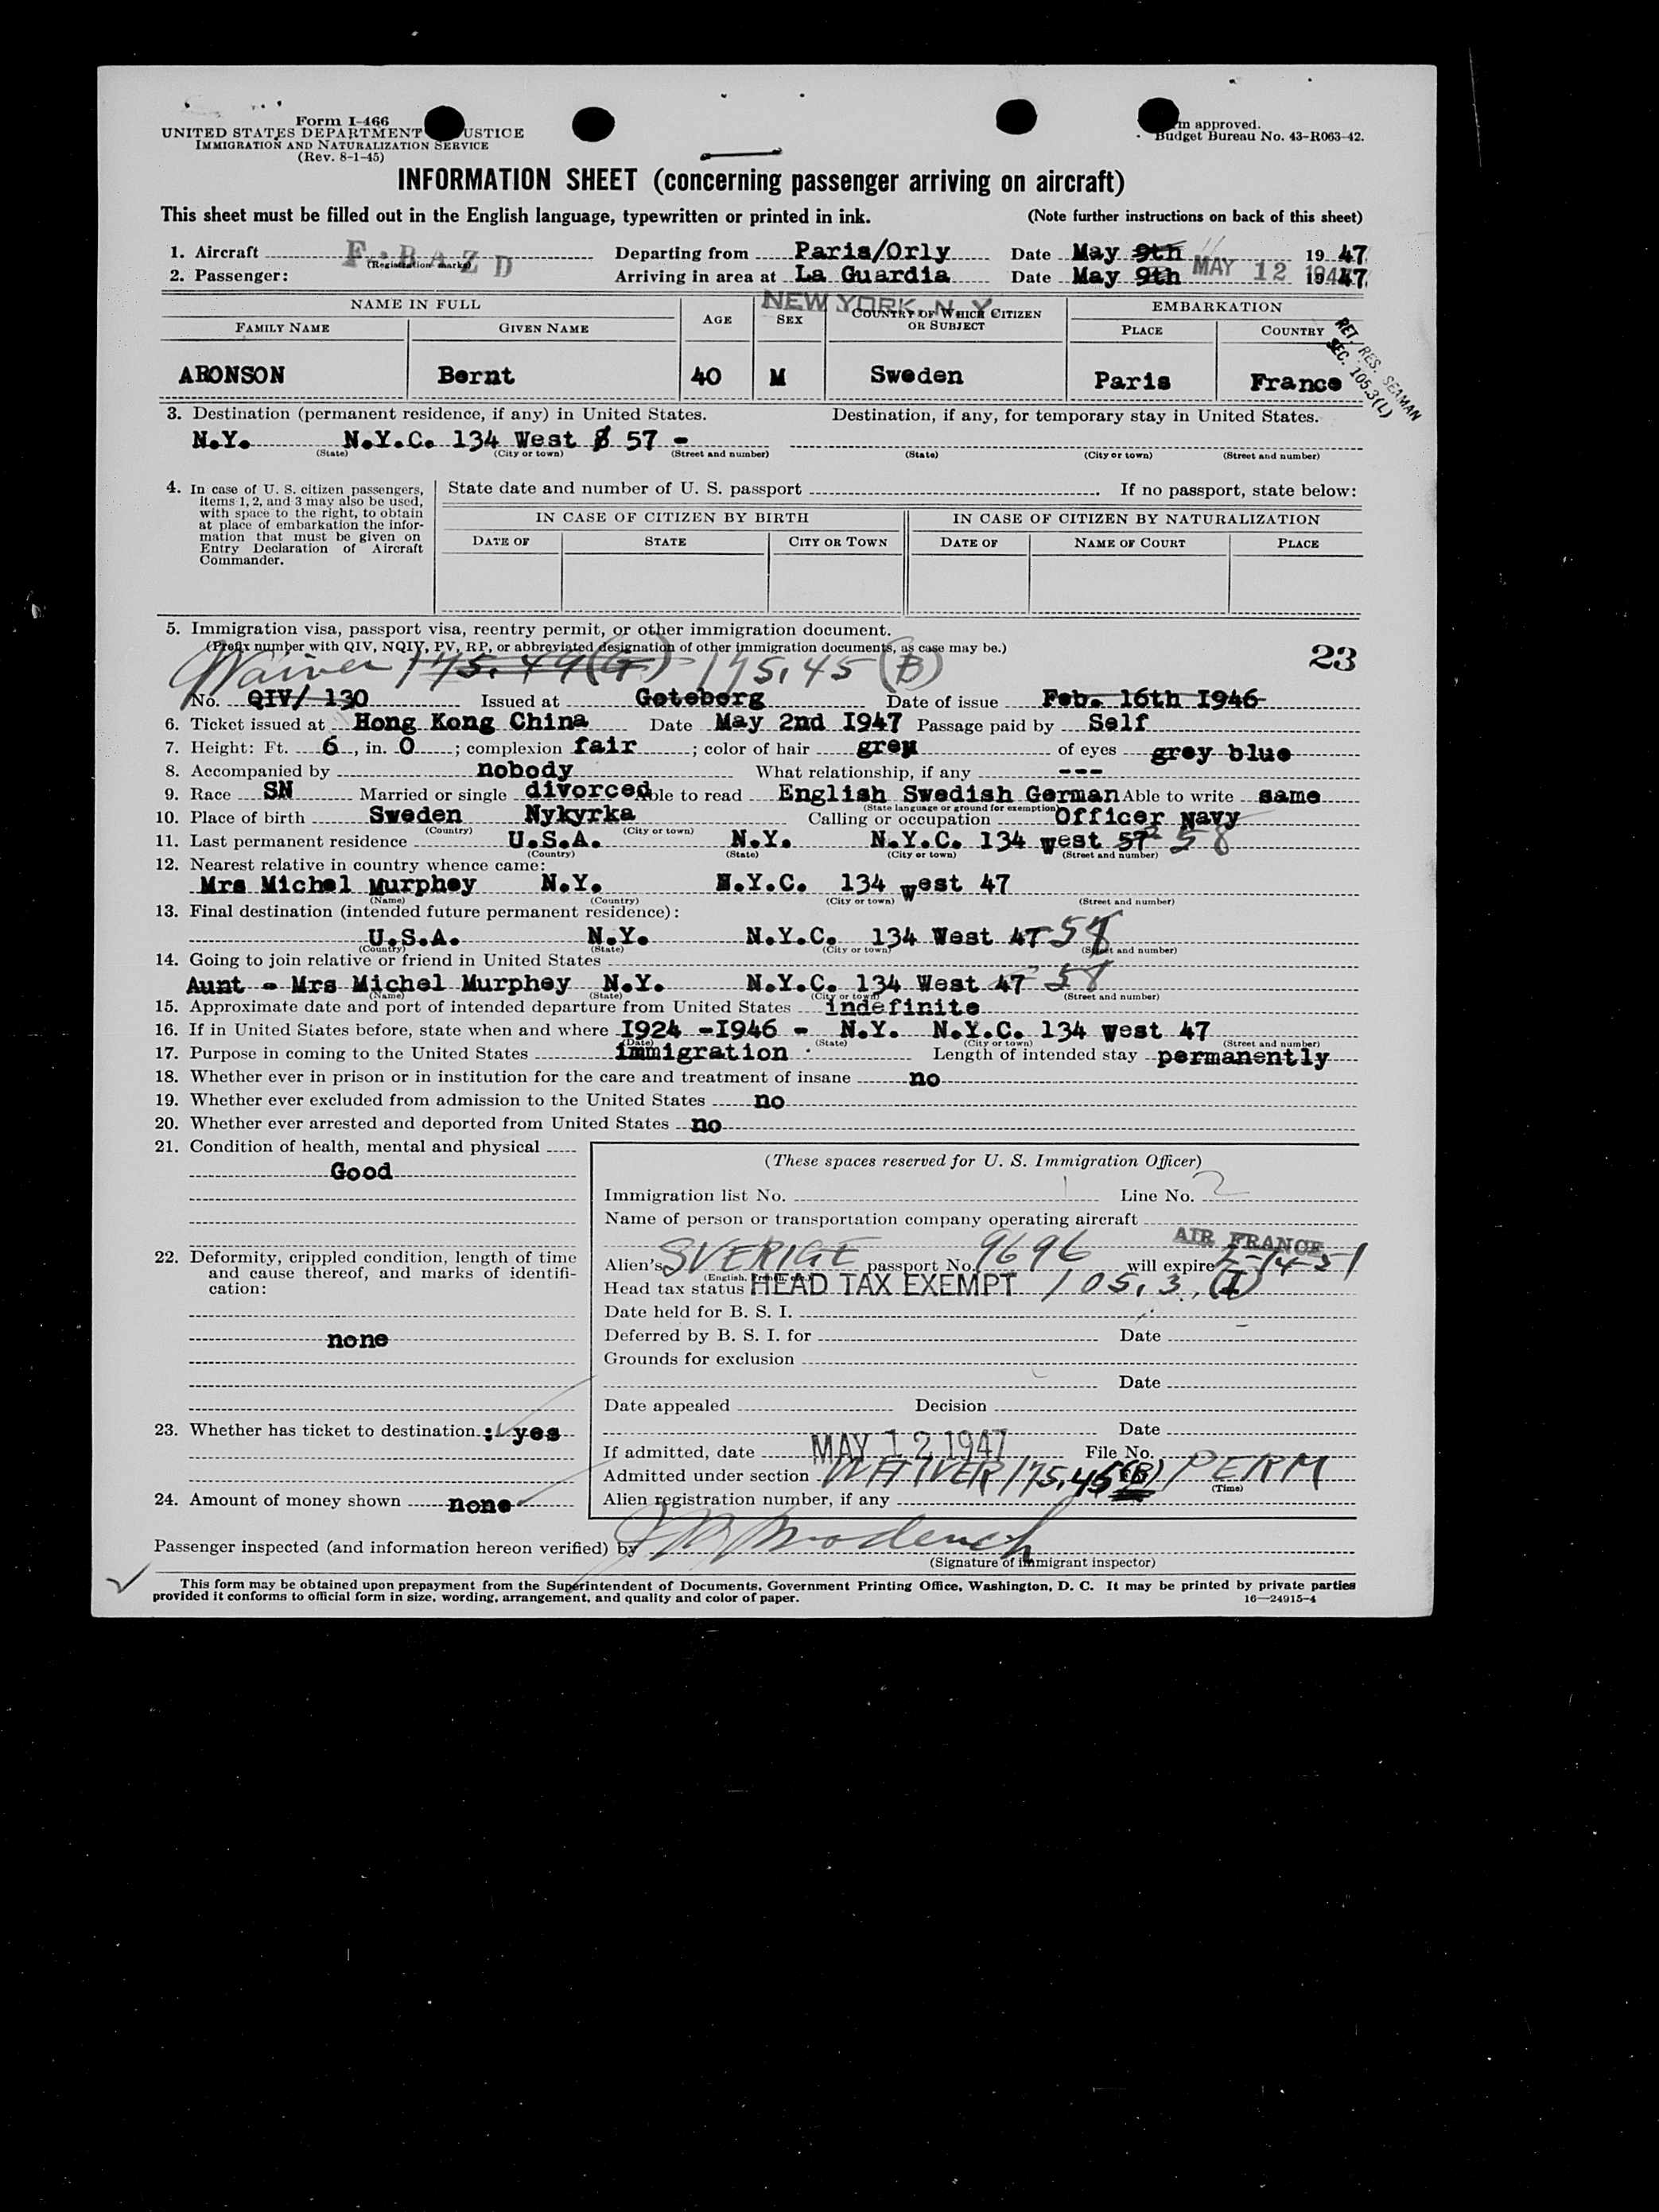 Form I-466
UNITED STATES DEPARTMENT USTICE
IMMIGRATION AND NATURALIZATION SERVICE
(Rev. 8-1-45)
m approved.
Budget Bureau No. 43-R063-42.
INFORMATION SHEET (concerning passenger arriving on aircraft)
This sheet must be filled out in the English language, typewritten or printed in ink. (Note further instructions on back of this sheet)
1. Aircraft F. B A Z D (Registration marks) Departing from Paris/Orly Date May 9th 11 19 47
2. Passenger: Arriving in area at La Guardia Date May 9th MAY 12 1947
NEW YORK, N. Y.
NAME IN FULL AGE SEX COUNTRY OF WHICH CITIZEN OR SUBJECT EMBARKATION
FAMILY NAME GIVEN NAME PLACE COUNTRY
RET. RES. SEAMAN
SEC. 105.3(L)
ARONSON Bernt 40 M Sweden Paris France
3. Destination (permanent residence, if any) in United States. Destination, if any, for temporary stay in United States.
N.Y. N.Y.C. 134 West 57 -
(State) (City or town) (Street and number) (State) (City or town) (Street and number)
4. In case of U. S. citizen passengers, items 1, 2, and 3 may also be used, with space to the right, to obtain at place of embarkation the information that must be given on Entry Declaration of Aircraft Commander.
State date and number of U. S. passport . If no passport, state below:
IN CASE OF CITIZEN BY BIRTH IN CASE OF CITIZEN BY NATURALIZATION
DATE OF STATE CITY OR TOWN DATE OF NAME OF COURT PLACE
5. Immigration visa, passport visa, reentry permit, or other immigration document.
(Prefix number with QIV, NQIV, PV, RP, or abbreviated designation of other immigration documents, as case may be.) 23
Waiver 175.49(G) 175.45(B)
No. QIV/ 130 Issued at Goteborg Date of issue Feb. 16th I946
6. Ticket issued at Hong Kong China Date May 2nd I947 Passage paid by Self
7. Height: Ft. 6, in. 0; complexion fair; color of hair grey of eyes grey blue
8. Accompanied by nobody What relationship, if any ---
9. Race SN Married or single divorced Able to read English Swedish German Able to write same
(State language or ground for exemption)
10. Place of birth Sweden Nykyrka Calling or occupation Officer Navy
(Country) (City or town)
11. Last permanent residence U.S.A. N.Y. N.Y.C. 134 west 57 58
(Country) (State) (City or town) (Street and number)
12. Nearest relative in country whence came:
Mrs Michel Murphey N.Y. N.Y.C. 134 west 47
(Name) (Country) (City or town) (Street and number)
13. Final destination (intended future permanent residence):
U.S.A. N.Y. N.Y.C. 134 West 47 58
(Country) (State) (City or town) (Street and number)
14. Going to join relative or friend in United States
Aunt - Mrs Michel Murphey N.Y. N.Y.C. 134 West 47 58
(Name) (State) (City or town) (Street and number)
15. Approximate date and port of intended departure from United States indefinite
16. If in United States before, state when and where I924 -I946 - N.Y. N.Y.C. 134 west 47
(Date) (State) (City or town) (Street and number)
17. Purpose in coming to the United States immigration Length of intended stay permanently
18. Whether ever in prison or in institution for the care and treatment of insane no
19. Whether ever excluded from admission to the United States no
20. Whether ever arrested and deported from United States no
21. Condition of health, mental and physical
Good
22. Deformity, crippled condition, length of time and cause thereof, and marks of identification:
none
23. Whether has ticket to destination : yes
24. Amount of money shown none
(These spaces reserved for U. S. Immigration Officer)
Immigration list No. 1 Line No. 2
Name of person or transportation company operating aircraft
AIR FRANCE
Alien's SVERIGE passport No. 9696 will expire 2-14-51
(English, French, etc.)
Head tax status HEAD TAX EXEMPT 105.3.(I)
Date held for B. S. I.
Deferred by B. S. I. for Date
Grounds for exclusion
Date
Date appealed Decision
Date
If admitted, date MAY 12 1947 File No.
Admitted under section WAIVER 175.45(B) PERM
(Time)
Alien registration number, if any
Passenger inspected (and information hereon verified) by
(Signature of immigrant inspector)
This form may be obtained upon prepayment from the Superintendent of Documents, Government Printing Office, Washington, D. C. It may be printed by private parties
provided it conforms to official form in size, wording, arrangement, and quality and color of paper. 16—24915-4